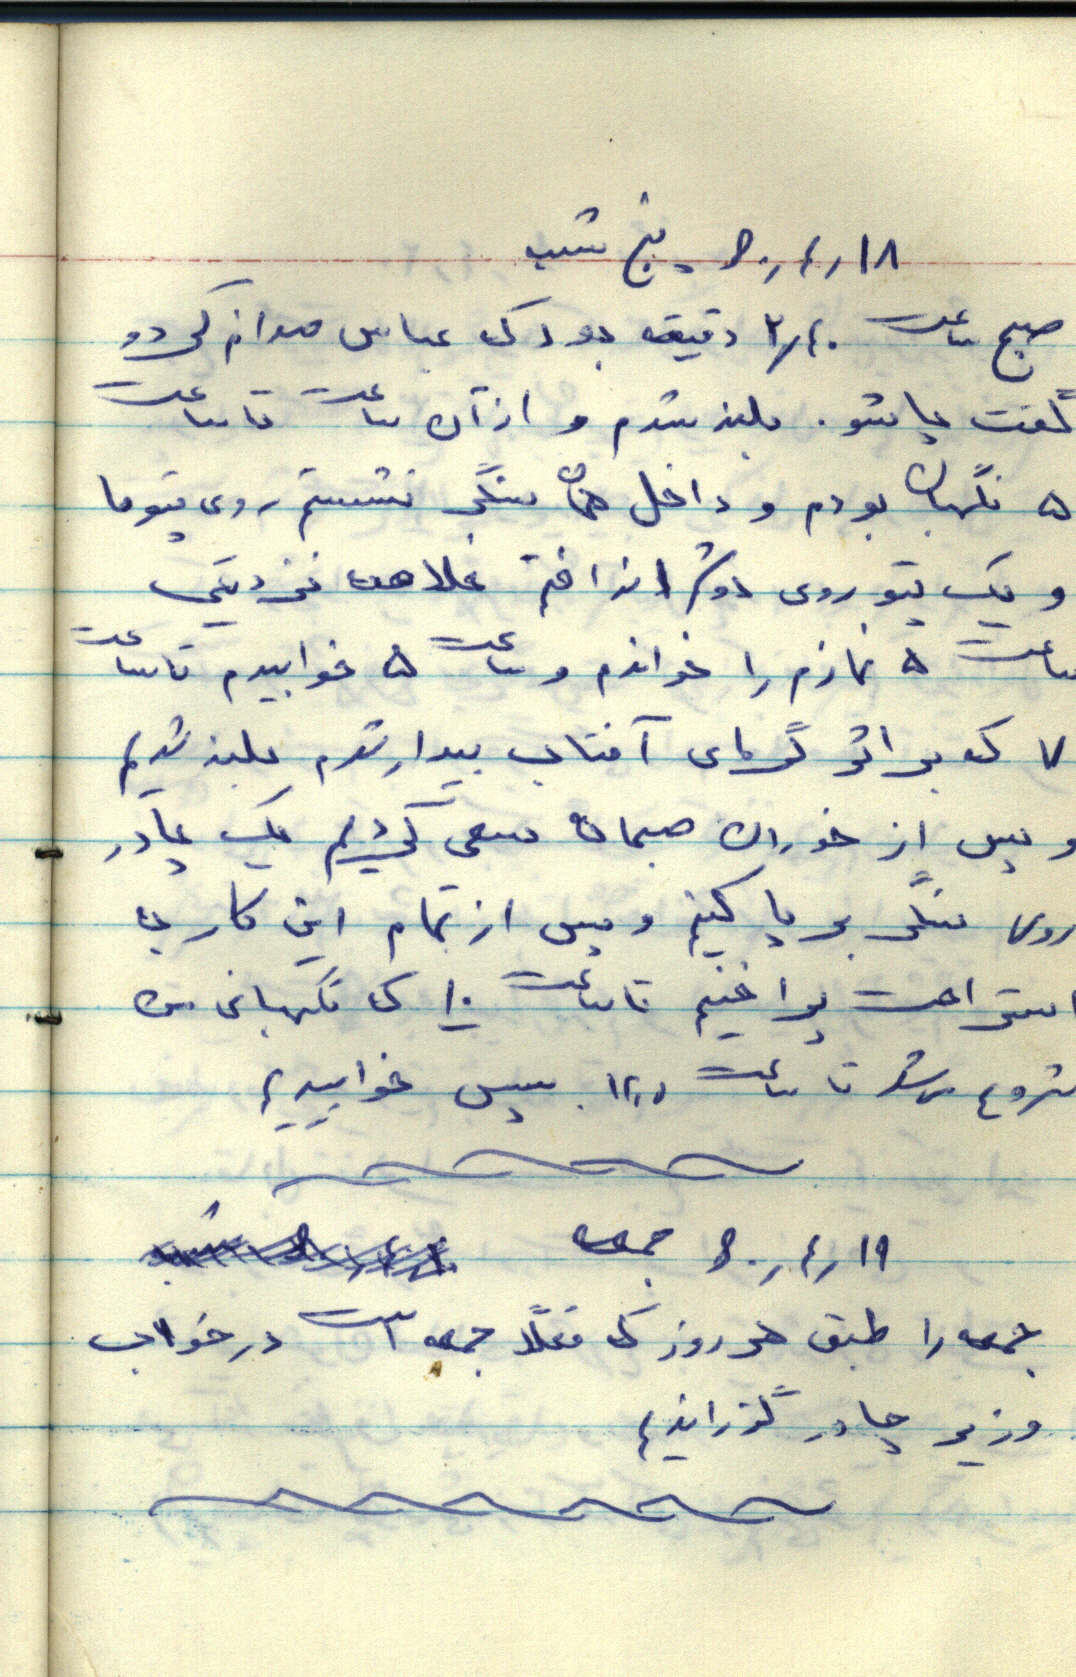 ۱۸ر۴ر۶۰ پنج شنبه
صبح ساعت ۲ر۴۰ دقیقه بود که عباس صدام کرد و
گفت پاشو. بلند شدم و از آن ساعت تا ساعت
۵ نگهبان بودم و داخل همان سنگر نشستم روی پتوها
و یک پتو روی دوشم انداختم خلاصه نزدیکی
ساعت ۵ نمازم را خواندم و ساعت ۵ خوابیدم تا ساعت
۷ که بر اثر گرمای آفتاب بیدار شدم بلند شدیم
و پس از خوردن صبحانه سعی کردیم یک چادر
روی سنگر بر پا کنیم و پس از تمام این کار به
استراحت پرداختیم تا ساعت ۱۰ که نگهبانی من
شروع میشد تا ساعت ۱۲٫۵ . سپس خوابیدیم
۱۹ر۴ر۶۰ جمعه
جمعه را طبق هر روز که مثلاً جمعه است در خواب
و زیر چادر گذراندیم